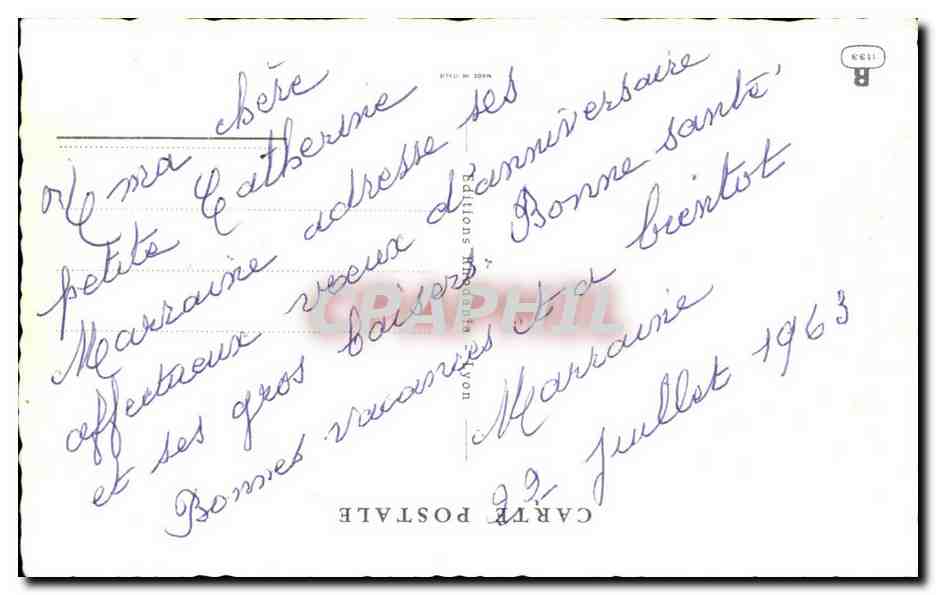 A ma chère
petite Catherine
Marraine adresse ses
affectueux voeux d'anniversaire
et ses gros baisers. Bonne santé,
Bonnes vacances et a bientot
Marraine
22 Juillet 1963
CARTE POSTALE
Editions Rhodania Lyon
MADE IN ITALY
R
1193
CPAPHIL